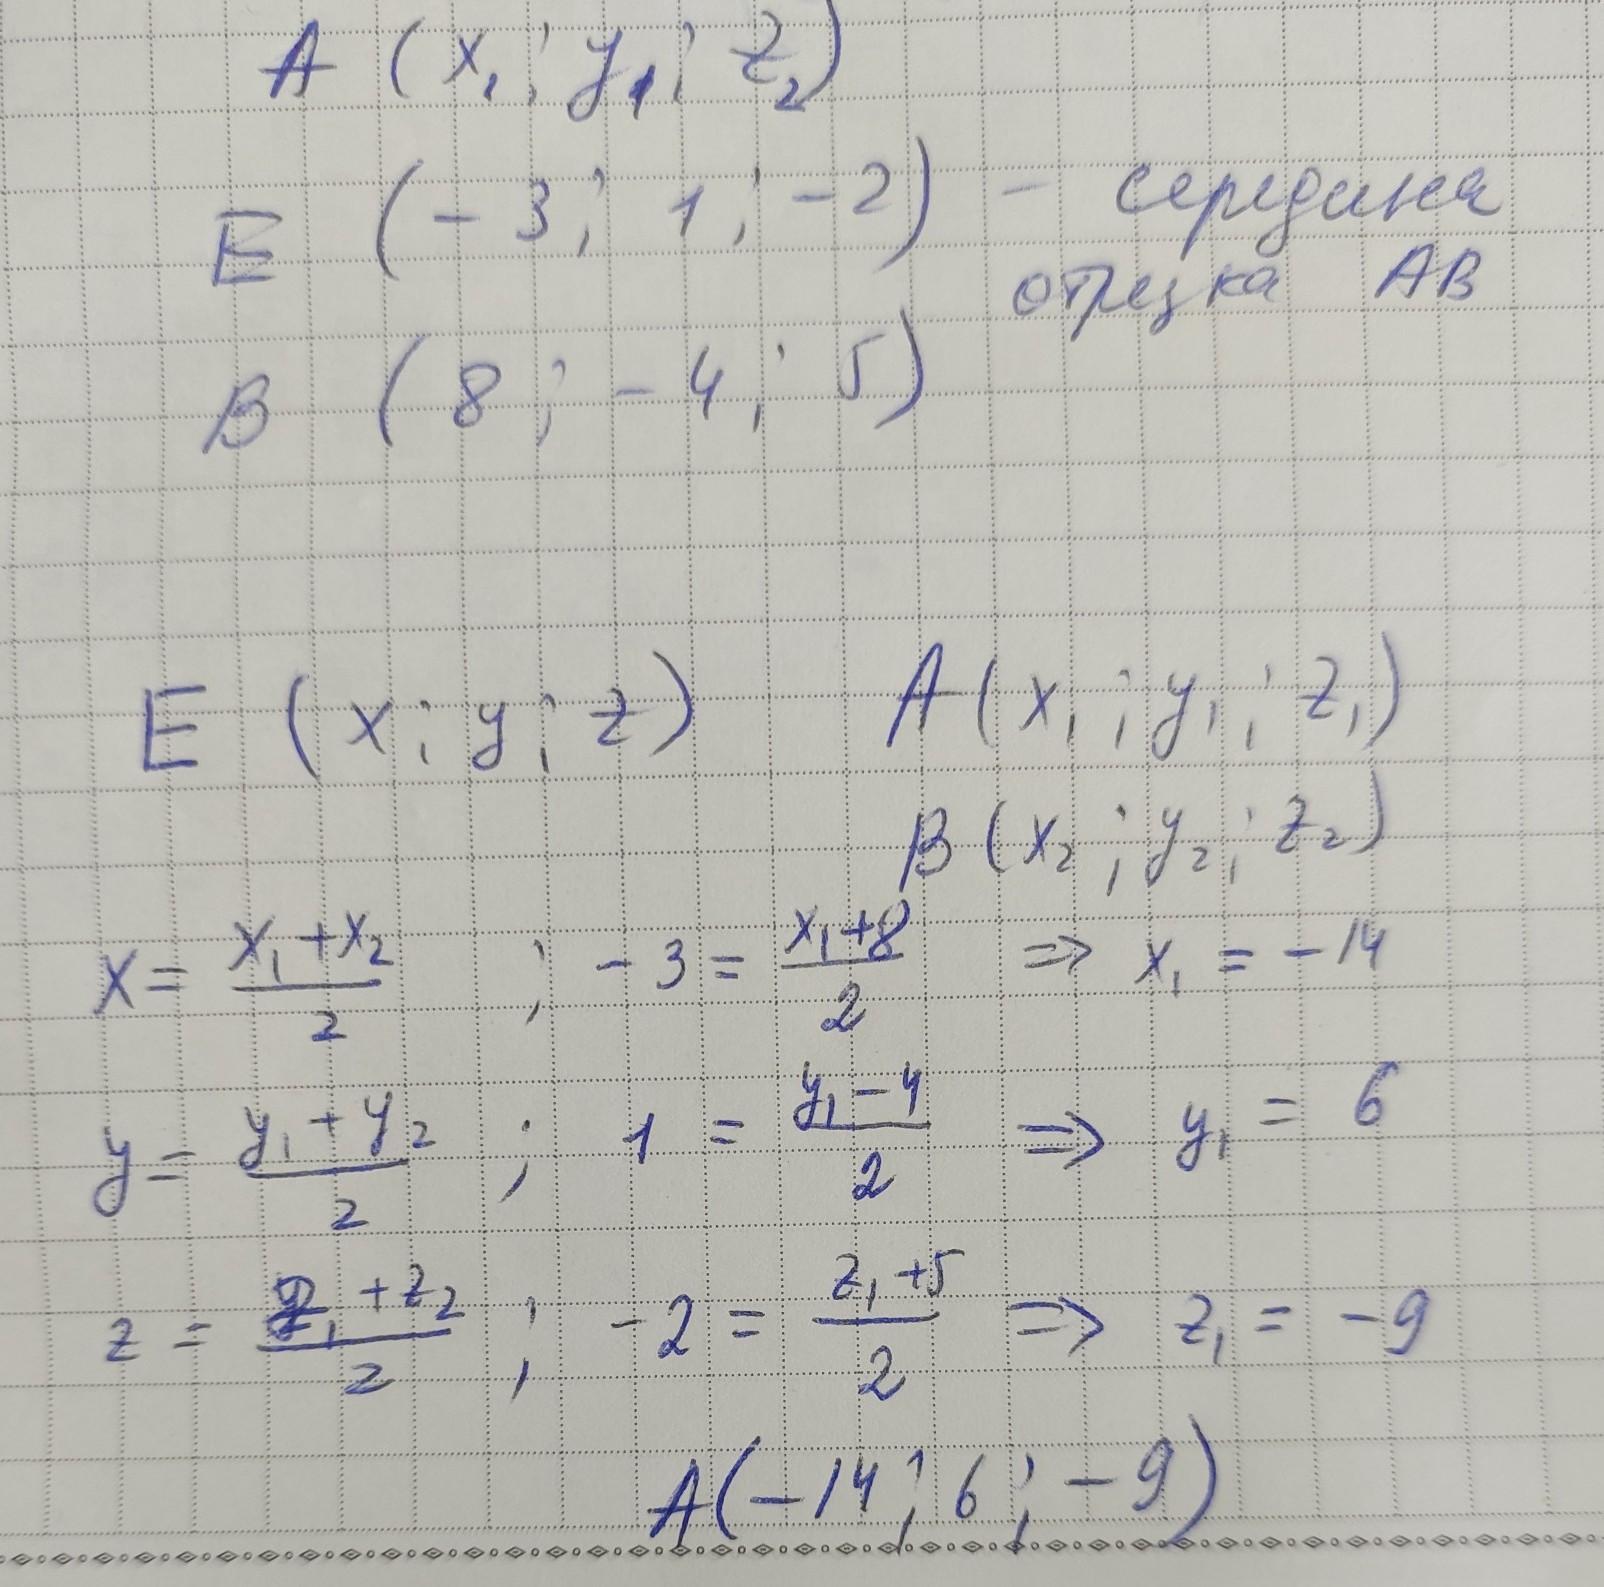 A (x₁; y₁; z₂)
E (-3; 1; -2) - середина
отрезка AB
B (8; -4; 5)
E (x; y; z) A(x₁; y₁; z₁)
B(x₂; y₂; z₂)
x = (x₁+x₂)/2 ; -3 = (x₁+8)/2 => x₁ = -14
y = (y₁+y₂)/2 ; 1 = (y₁-4)/2 => y₁ = 6
z = (z₁+z₂)/2 ; -2 = (z₁+5)/2 => z₁ = -9
A(-14; 6; -9)